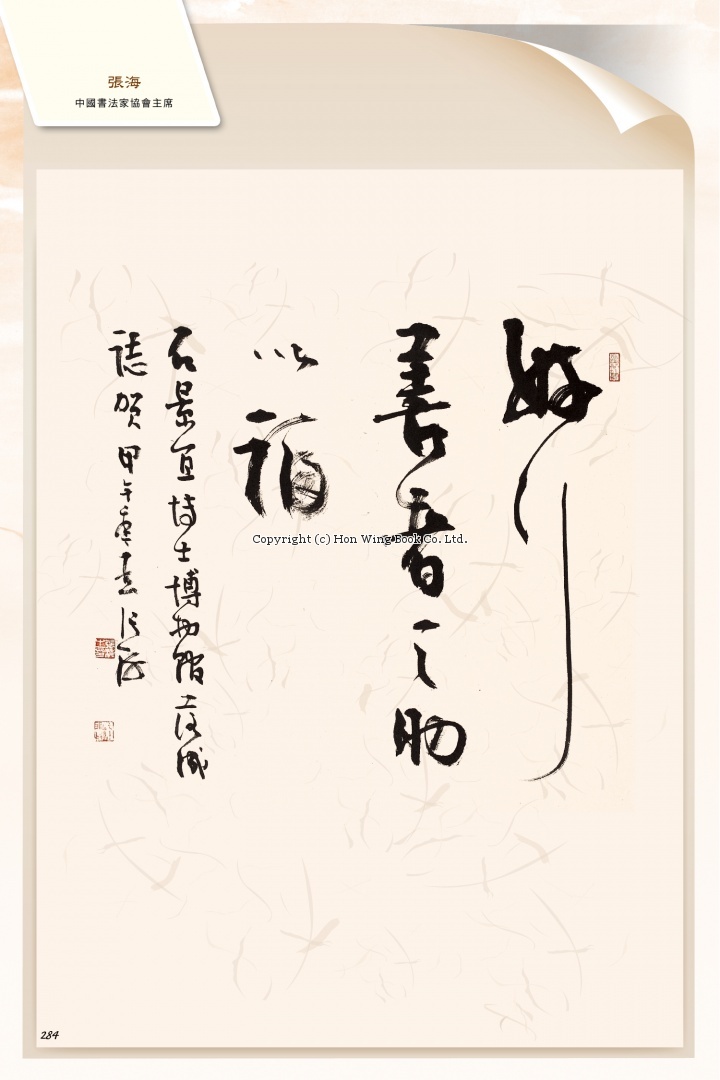 張海
中國書法家協會主席
好行
善者之助
以福
石景宜博士博物館落成
誌賀 甲午 張海
Copyright (c) Hon Wing Book Co. Ltd.
284